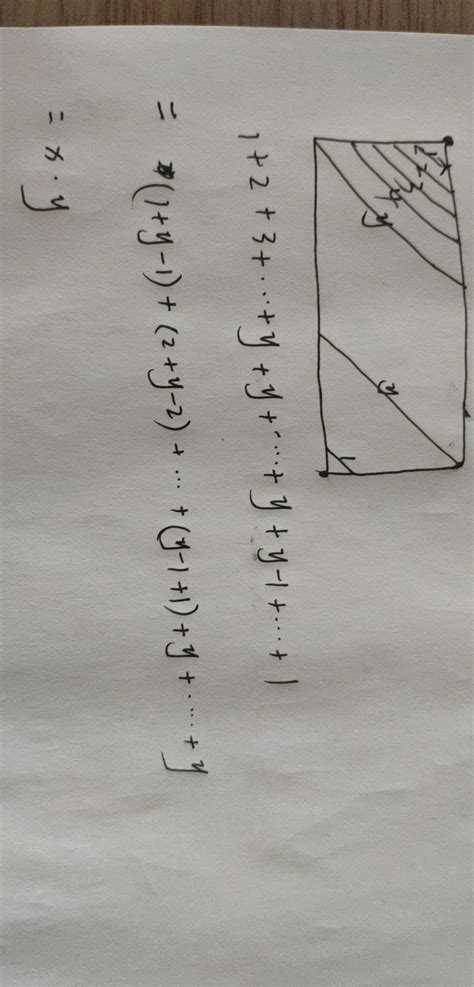 1 2 3 4 y y 1
1+2+3+···+y+y+···+y+y-1+···+1
= (1+y-1)+(2+y-2)+···+(y-1+1)+y+····+y
= x·y